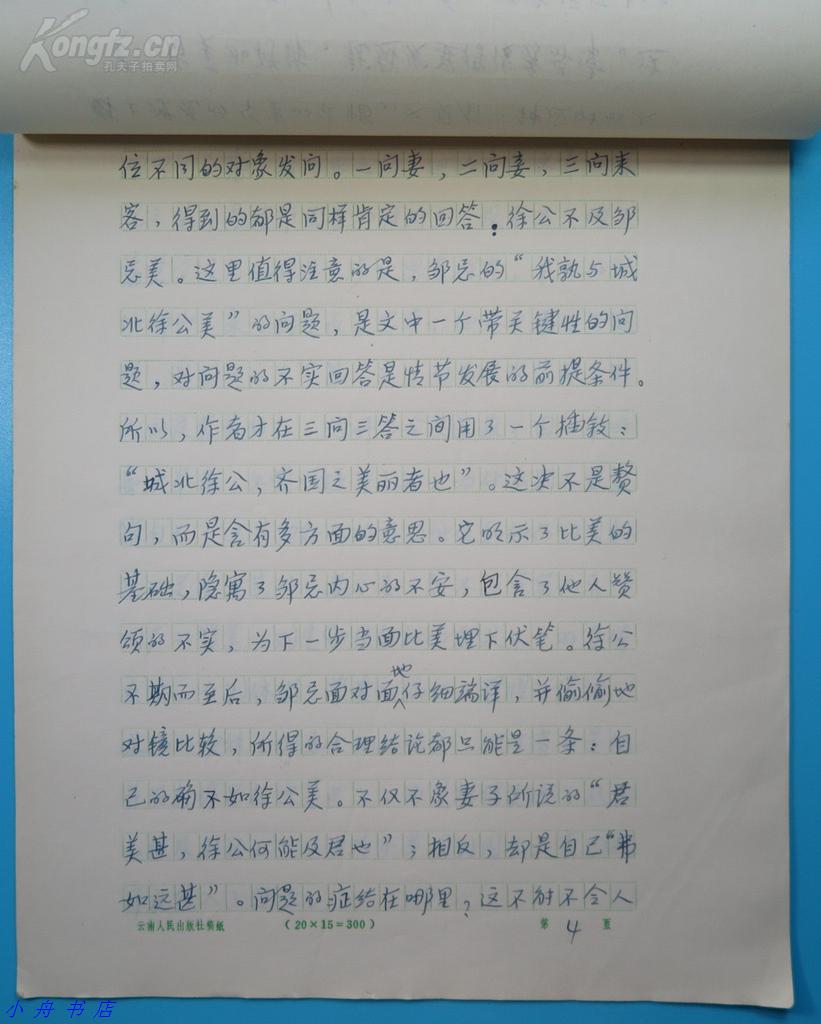 Kongfz.cn
孔夫子拍卖网
位不同的对象发问。一问妻，二问妾，三问来
客，得到的都是同样肯定的回答：徐公不及邹
忌美。这里值得注意的是，邹忌的“我孰与城
北徐公美”的问题，是文中一个带关键性的问
题，对问题的不实回答是情节发展的前提条件。
所以，作者才在三问三答之间用了一个插叙：
“城北徐公，齐国之美丽者也”。这决不是赘
句，而是含有多方面的意思。它明示了比美的
基础，隐寓了邹忌内心的不安，包含了他人赞
颂的不实，为下一步当面比美埋下伏笔。徐公
不期而至后，邹忌面对面地仔细端详，并偷偷地
对镜比较，所得的合理结论都只能是一条：自
己的确不如徐公美。不仅不象妻子所说的“君
美甚，徐公何能及君也”；相反，却是自己“弗
如远甚”。问题的症结在哪里？这不能不令人
云南人民出版社稿纸 （20×15=300） 第 4 页
小舟书店